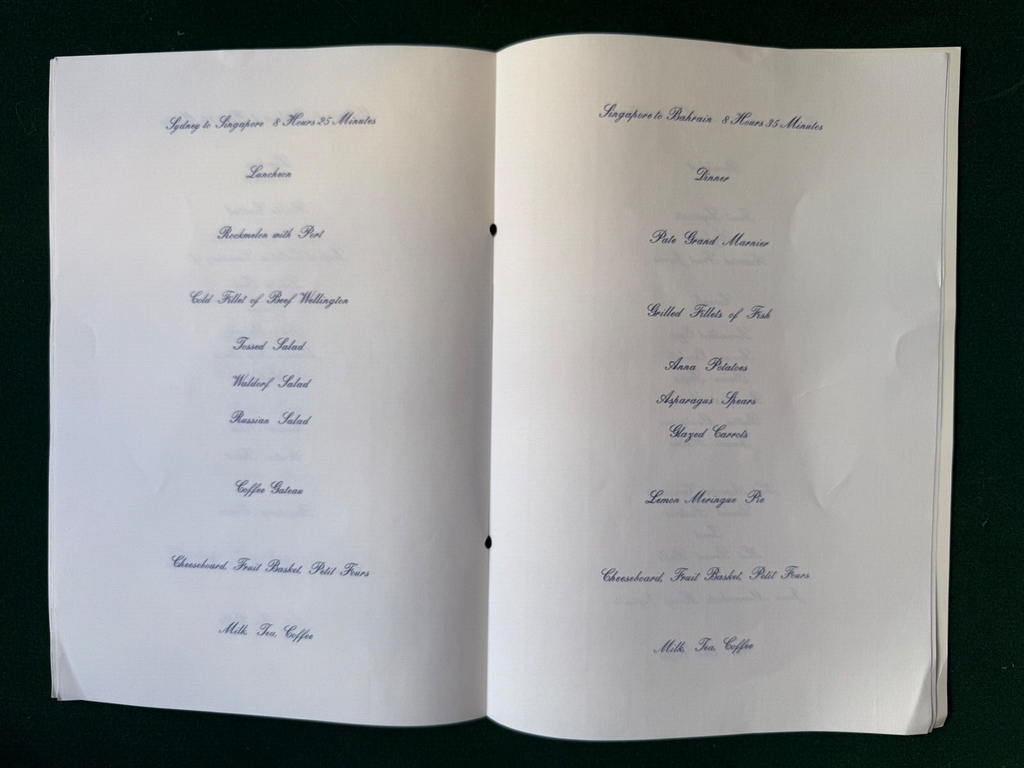 Sydney to Singapore 8 Hours 25 Minutes
Luncheon
Rockmelon with Port
Cold Fillet of Beef Wellington
Tossed Salad
Waldorf Salad
Russian Salad
Coffee Gateau
Cheeseboard, Fruit Basket, Petit Fours
Milk, Tea, Coffee
Singapore to Bahrain 8 Hours 35 Minutes
Dinner
Pate Grand Marnier
Grilled Fillets of Fish
Anna Potatoes
Asparagus Spears
Glazed Carrots
Lemon Meringue Pie
Cheeseboard, Fruit Basket, Petit Fours
Milk, Tea, Coffee